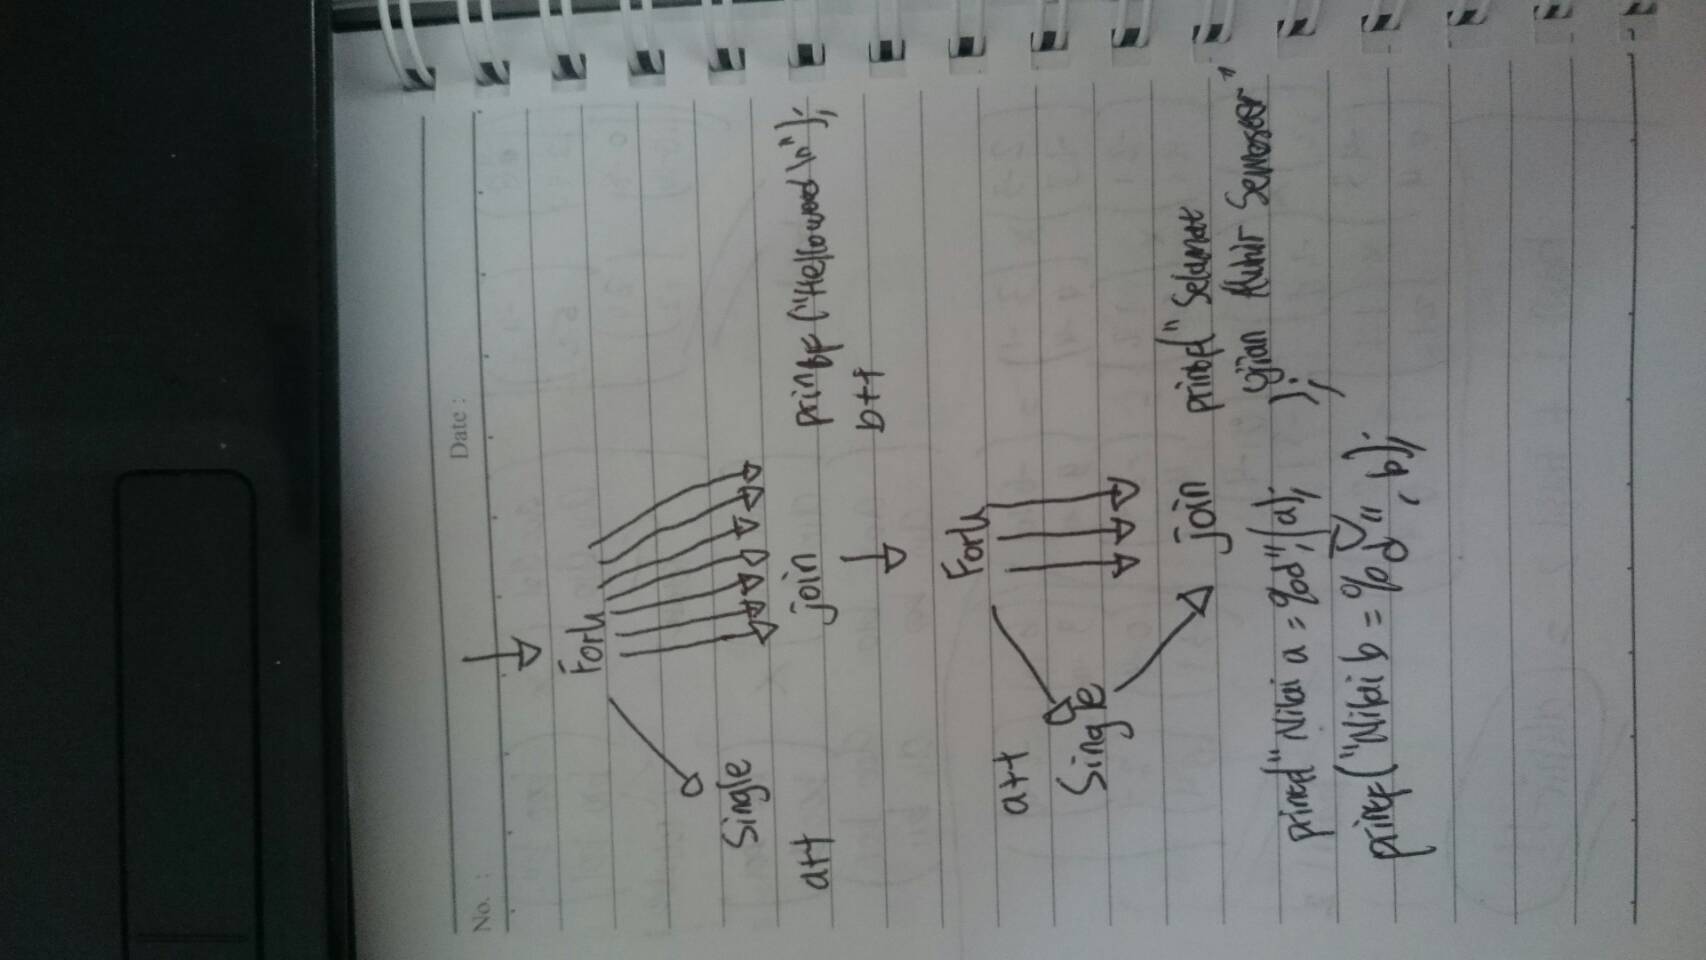 No. :
Date :
Fork
Single
a++
join
printf ("Helloword \n");
b++
Fork
a++
Single
join
printf("Selamat
Ujian Akhir Semester"
);
printf"Nilai a = %d",(a);
printf("Nilai b = %d", b);